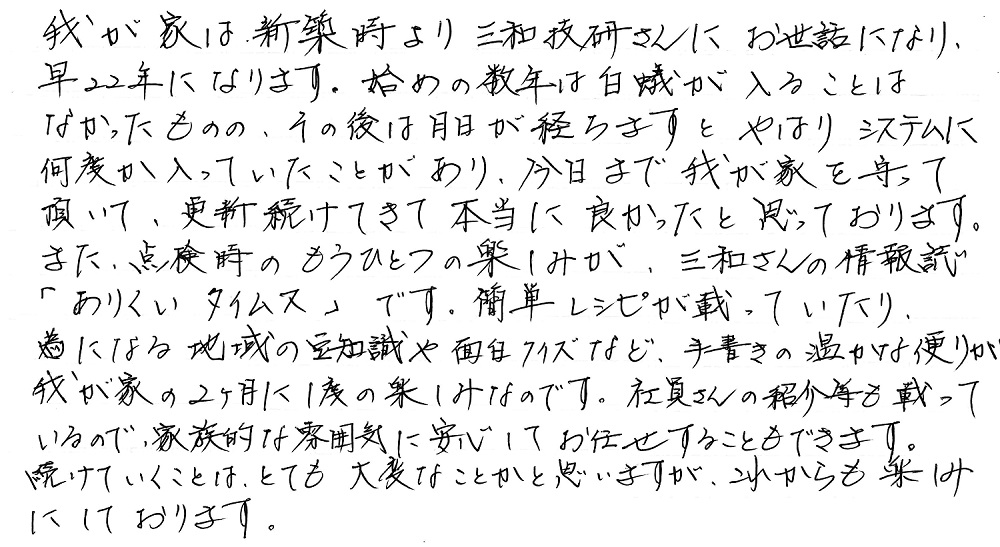 我が家は新築時より三和技研さんにお世話になり、
早22年になります。始めの数年は白蟻が入ることは
なかったものの、その後は月日が経ちますとやはりシステムに
何度か入っていたことがあり、今日まで我が家を守って
頂いて、更新続けてきて本当に良かったと思っております。
また、点検時のもうひとつの楽しみが、三和さんの情報誌
「ありくいタイムス」です。簡単レシピが載っていたり、
為になる地域の豆知識や面白クイズなど、手書きの温かな便りが
我が家の2ヶ月に1度の楽しみなのです。社員さんの紹介等も載って
いるので、家族的な雰囲気に安心してお任せすることもできます。
続けていくことは、とても大変なことかと思いますが、これからも楽しみ
にしております。